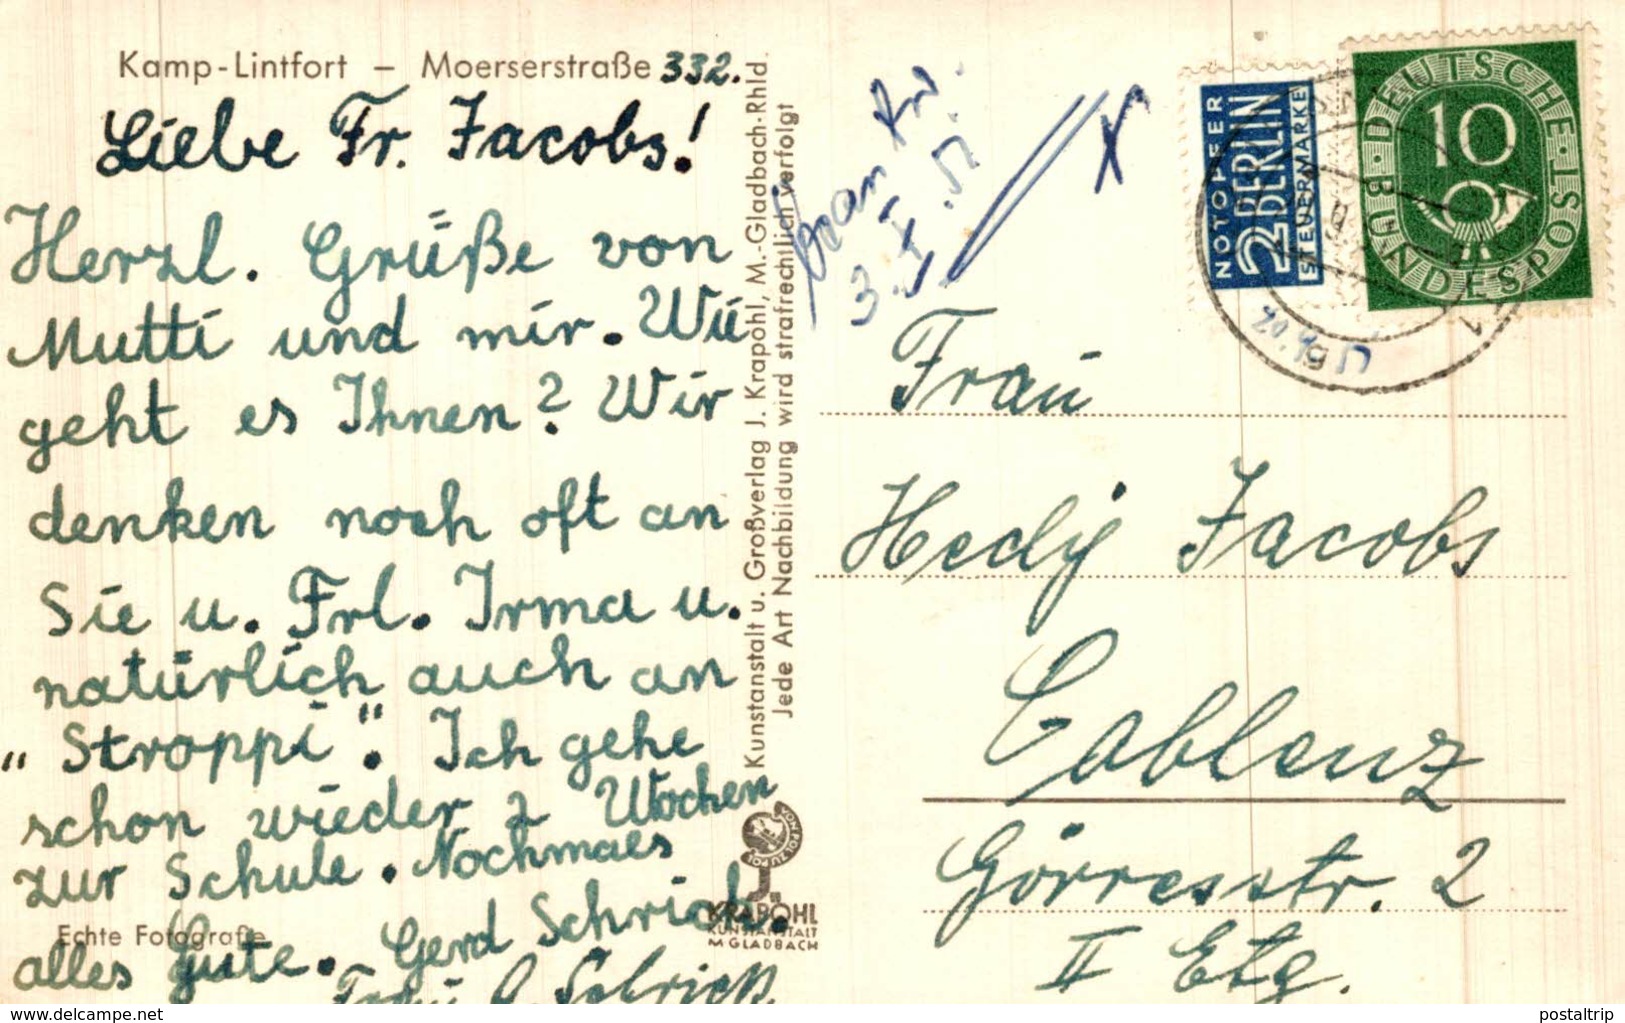 Kamp-Lintfort – Moerserstraße 332.
Liebe Fr. Jacobs!
Herzl. Grüße von
Mutti und mir. Wie
geht es Ihnen? Wir
denken noch oft an
Sie u. Frl. Irma u.
natürlich auch an
„Stroppi". Ich gehe
schon wieder 2 Wochen
zur Schule. Nochmals
alles Gute. Gerd Schrick.
Frau
Echte Fotografie
Kunstanstalt u. Großverlag J. Krapohl, M.-Gladbach-Rhld.
Jede Art Nachbildung wird strafrechtlich verfolgt
KRAPOHL
KUNSTANSTALT
M GLADBACH
NOTOPFER
2 BERLIN
STEUERMARKE
DEUTSCHE BUNDESPOST
10
Frau
Hedy Jacobs
Coblenz
Görresstr. 2
II Etg.
www.delcampe.net
postaltrip